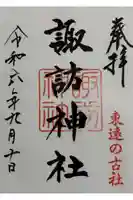 奉拝
東遠の古社
諏訪神社
令和六年九月十日